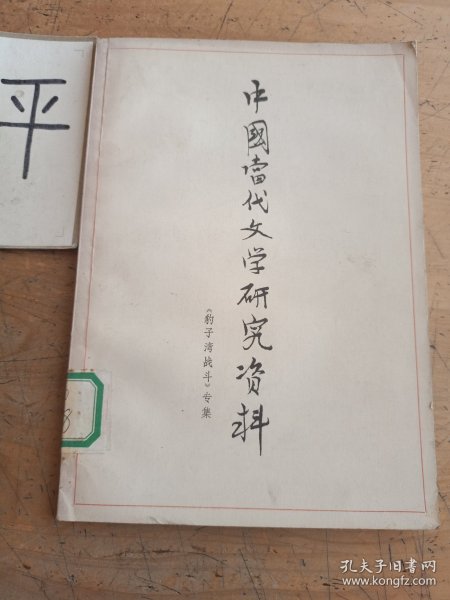 平
中國當代文学研究资料
《豹子湾战斗》专集
8
孔夫子旧书网
www.kongfz.com